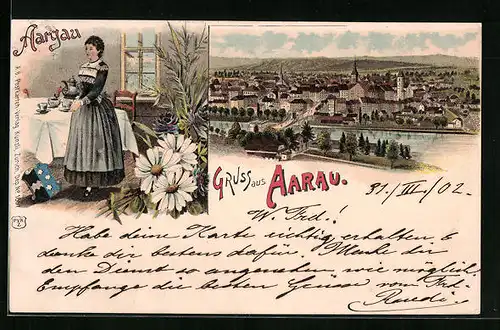 Aargau
Gruss aus Aarau.
31./III./02.
W. Frd.!
Habe deine Karte richtig erhalten &
danke dir bestens dafür. Mache dir
den Dienst so angenehm wie möglich.
Empfange die besten Grüsse vom Frd.
Ruedi